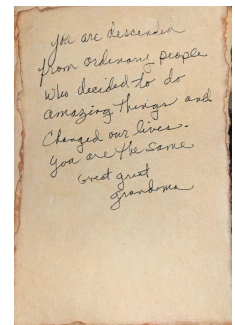 you are descenden
from ordinary people
who decided to do
amazing things and
changed our lives.
you are the same
Great great
grandma